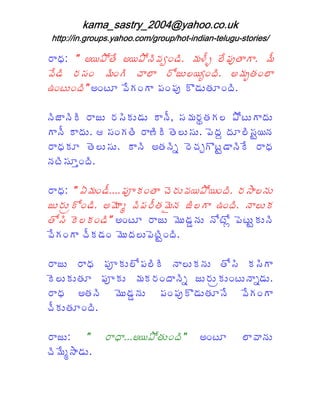 kama_sastry_2004@yahoo.co.uk
http://in.groups.yahoo.com/group/hot-indian-telugu-stories/
రాధ: " అయిపోతే అయిపోనివ్వండి. మళ్ళీ లేపుతాగా. మీ
వేడి రసం మింగి చాలా రోజులయ్యింది. అమృతంలా
ఉంటుంది" అంటూ వేగంగా పంపు కొడుతూంది.
నిజానికి రాజు రసికుడు కానీ, సమర్థతగల పోటుగాదు
గానీ కాదు. ఆ సంగతి రాణికి తెలుసు. పెద్ద దూలిపైయిన
రాధకూ తెలుసు. కాని అతన్ని రెచ్చగొట్టడానికే రాధ
నటిస్తూంది.
రాధ: " ఏమండీ....పూకంతా చెరువయిపోయింది. రసాలను
జుర్రుకోండి. అమ్మో విపరీతమైన జిలగా ఉంది. నాలుక
తోసి కెలకండి" అంటూ రాజు మొడ్డను నోట్లో పెట్టుకుని
వేగంగా చీకడం మొదలుపెట్టింది.
రాజు రాధ పూకులోపలికి నాలుకను తోసి కసిగా
కెలుకుతూ పూకు మకరందాన్ని జుర్రుకుంటున్నాడు.
రాధ అతని మొడ్డను పంపుకొడుతూనే వేగంగా
చీకుతూంది.
రాజు: " రాధా...అయిపోతుంది" అంటూ లావాను
చిమ్మేసాడు.